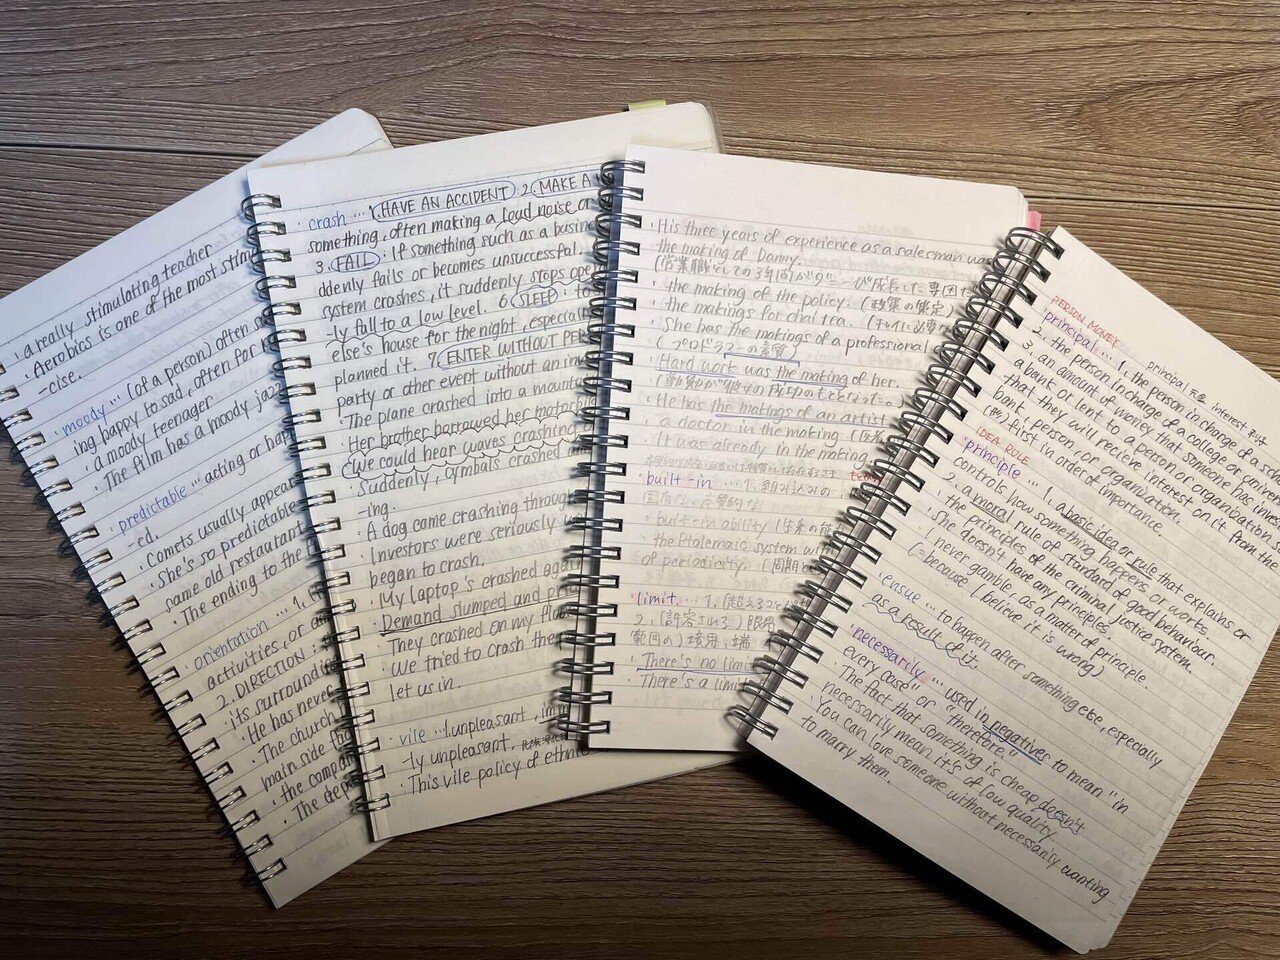 · a really stimulating teacher
· Aerobics is one of the most stim
-cise.
· moody … (of a person) often
ing happy to sad, often for
· a moody teenager
· The film has a moody jazz
· predictable … acting or hap
-ed.
· Comets usually appear
· She's so predictable
same old restaurant
· The ending to the
· orientation … 1.
activities, or a
2. DIRECTION :
its surroundi
· He has never
· The church
main side fac
· the compan
· The dep
· crash … 1. HAVE AN ACCIDENT 2. MAKE A
something, often making a loud noise or
3. FALL : If something such as a busin
ddenly fails or becomes unsuccessful.
system crashes, it suddenly stops ope
-ly fall to a low level. 6. SLEEP : to
else's house for the night, especial
planned it. 7. ENTER WITHOUT PER
party or other event without an inv
· The plane crashed into a mounta
· Her brother borrowed her motor
· We could hear waves crashing
· Suddenly, cymbals crashed an
-ing.
· A dog came crashing through
· Investors were seriously
began to crash.
· My laptop's crashed again
· Demand slumped and pri
· They crashed on my flo
· We tried to crash the
let us in.
· vile … 1. unpleasant, imm
-ly unpleasant.
· This vile policy of ethni
· His three years of experience as a salesman was
the making of Danny.
· the making of the policy. (政策の策定)
· the makings for chai tea. (チャイに必要な
· She has the makings of a professional
· Hard work was the making of her.
· He has the makings of an artist
· a doctor in the making
· It was already in the making
· built-in … 1. 組み込みの
· built-in ability
· the Ptolemaic system with
of periodicity.
· limit. … 1.
2. (許容される) 限
範囲の) 境界、端
· There's no limi
· There's a limit
PERSON MONEY
· principal … 1. principal 元金 interest 利子
2. the person in charge of a college or univers
3. an amount of money that someone has inves
a bank, or lent to a person or organization,
that they will recieve interest on it from the
bank, person, or organization.
first in order of importance.
IDEA RULE
· principle … 1. a basic idea or rule that explains or
controls how something happens or works
2. a moral rule of standard of good behaviour.
· the principles of the criminal justice system.
· She doesn't have any principles.
· I never gamble, as a matter of principle.
(= because I believe it is wrong)
· ensue … to happen after something else, especially
as a result of it.
· necessarily … used in negatives to mean "in
every case" or "therefore"
· The fact that something is cheap doesn't
necessarily mean it's of low quality.
· You can love someone without necessarily wanting
to marry them.